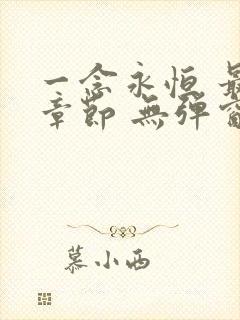 一念永恒 最
章節 無彈窗
慕小西